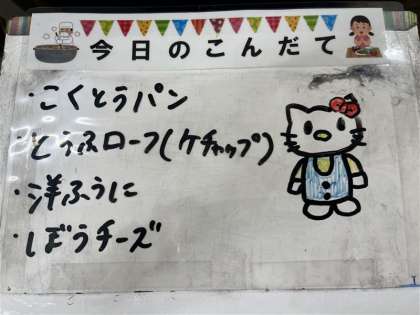 今日のこんだて
・こくとうパン
・とうふローフ(ケチャップ)
・洋ふうに
・ぼうチーズ